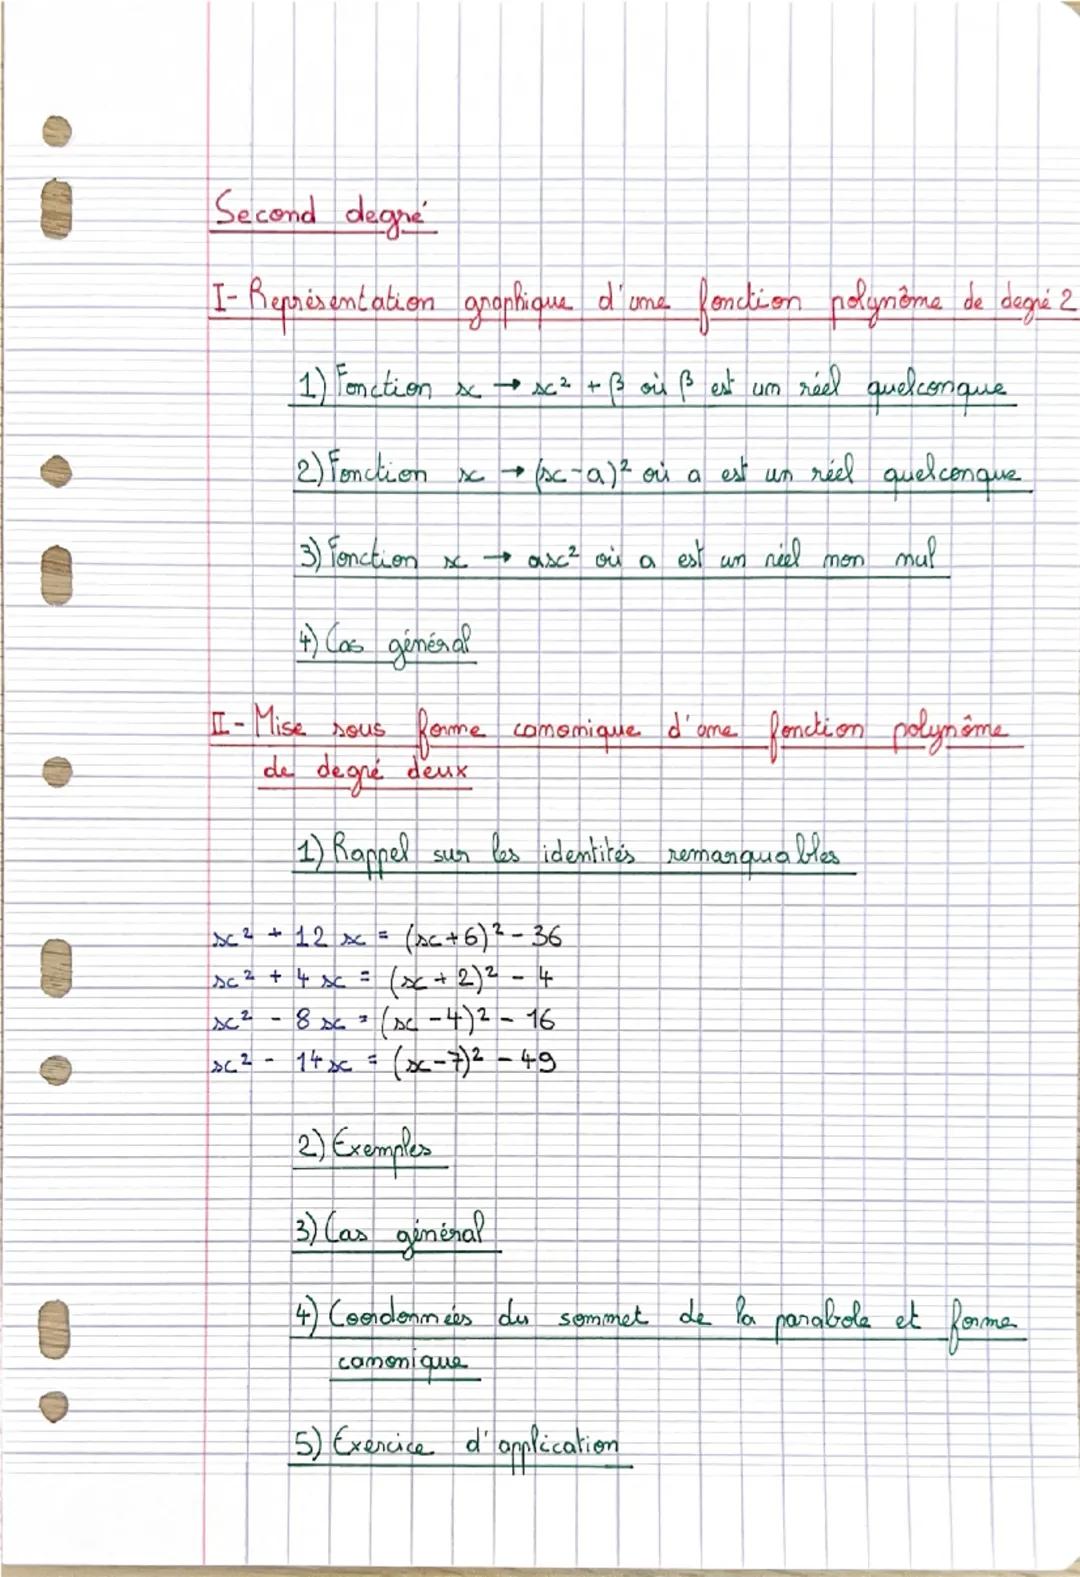 Second degré
I- Représentation graphique d'une fonction polynôme de degré 2
1) Fonction x → x² + β où β est un réel quelconque
2) Fonction x → (x-a)² où a est un réel quelconque
3) Fonction x → ax² où a est un réel non nul
4) Cas général
II- Mise sous forme canonique d'une fonction polynôme
de degré deux
1) Rappel sur les identités remarquables
x² + 12 x = (x+6)² - 36
x² + 4 x = (x + 2)² - 4
x² - 8 x = (x - 4)² - 16
x² - 14 x = (x-7)² - 49
2) Exemples
3) Cas général
4) Coordonnées du sommet de la parabole et forme
canonique
5) Exercice d'application